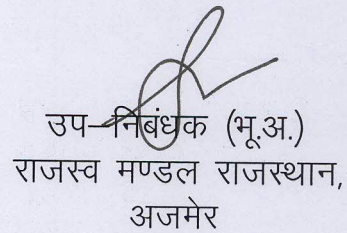 उप–निबंधक (भू.अ.)
राजस्व मण्डल राजस्थान,
अजमेर